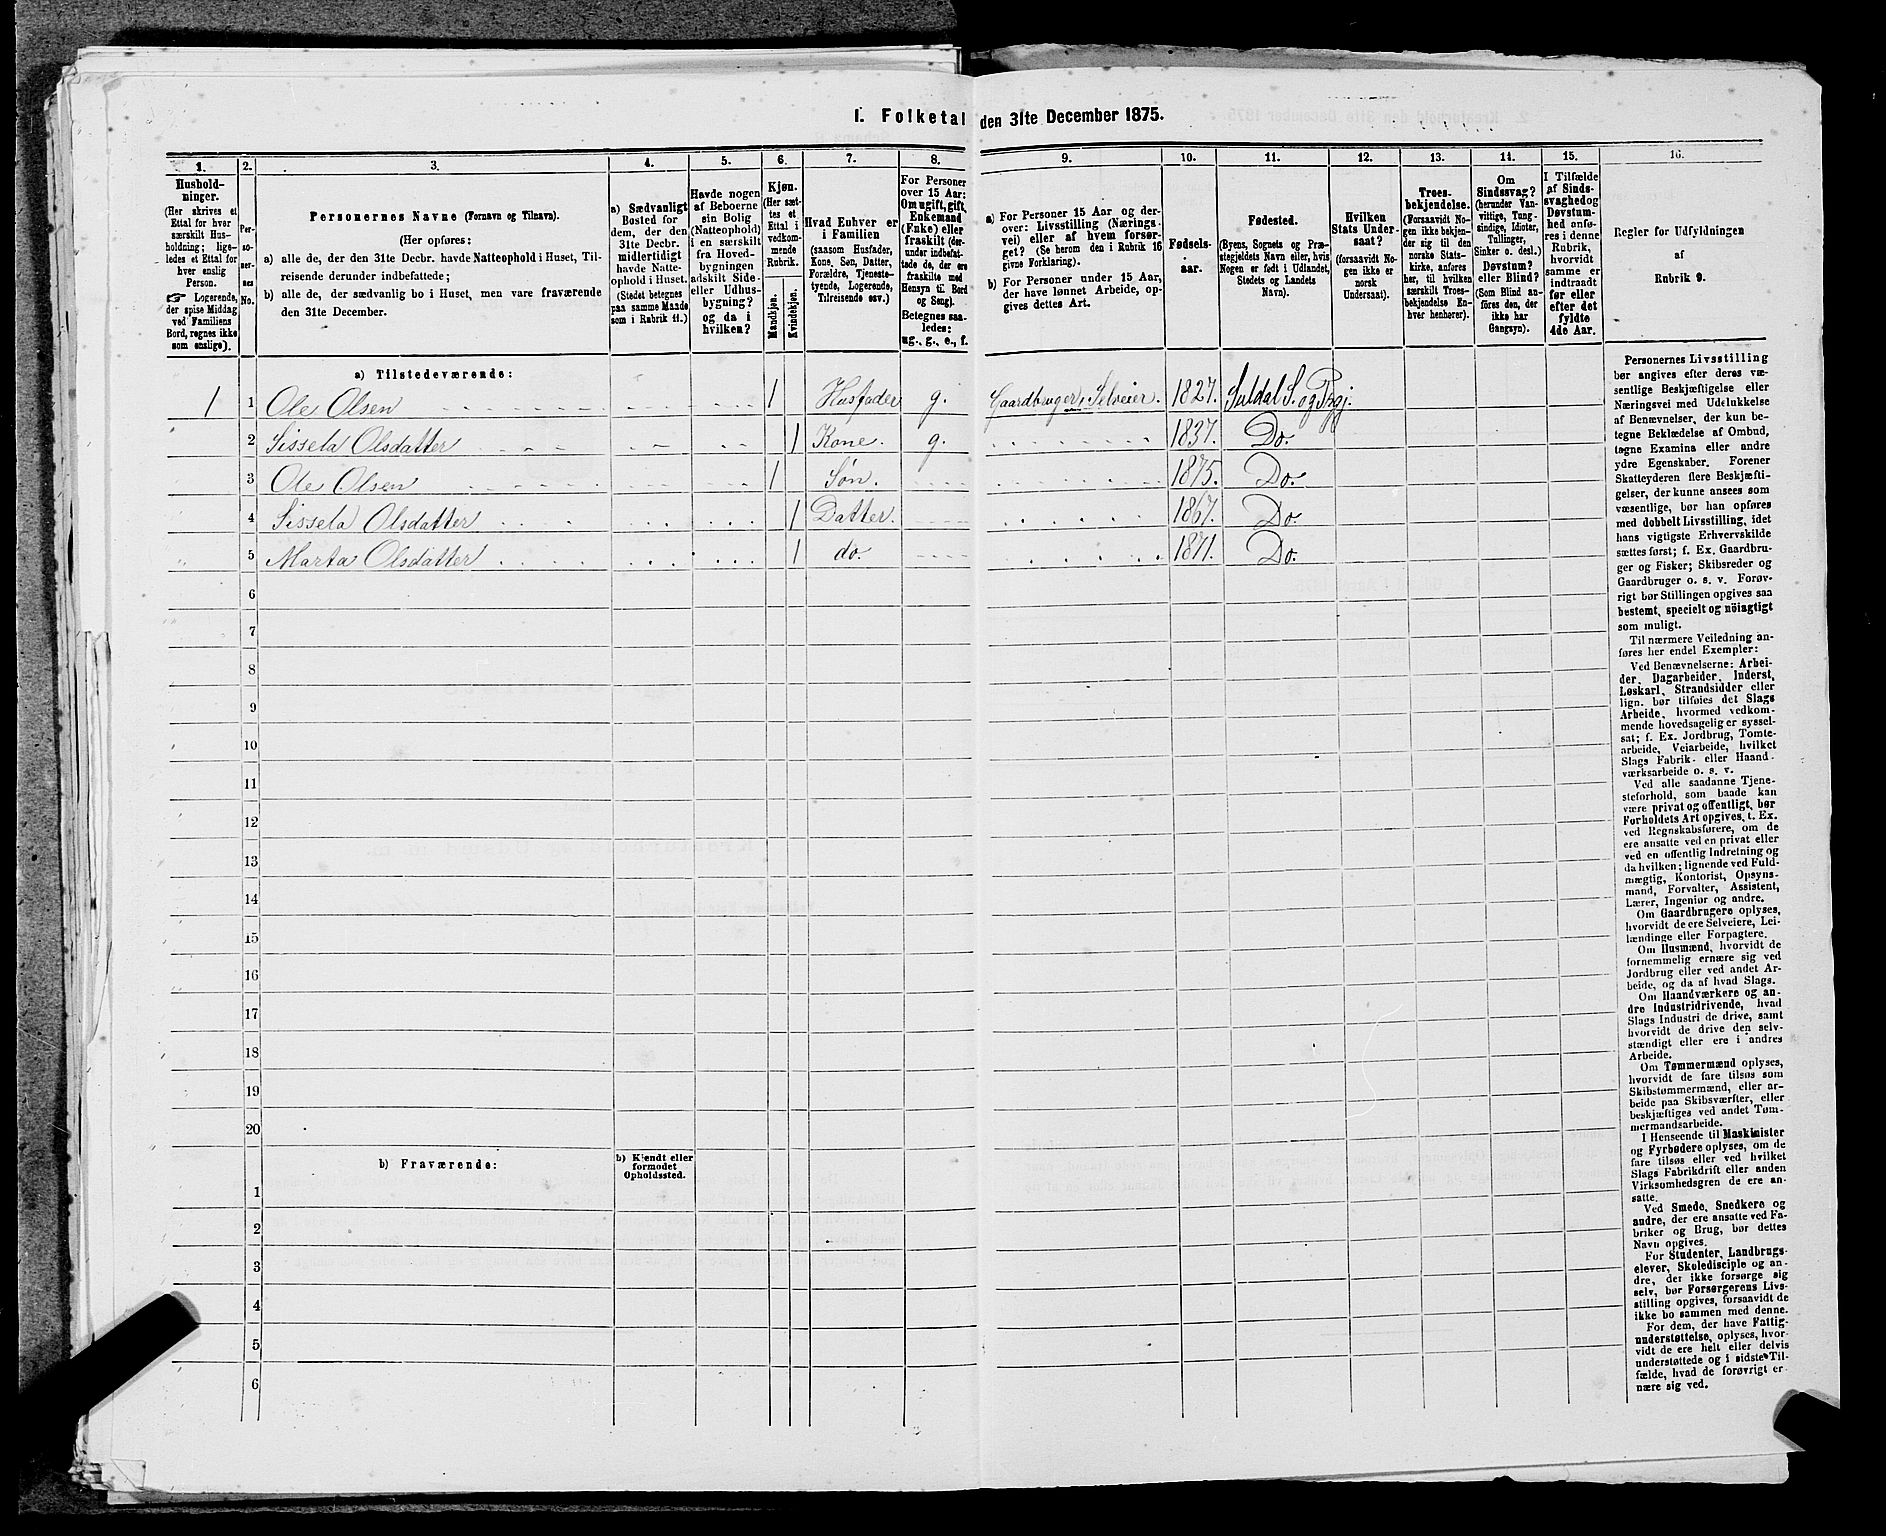 I. Folketal den 31te December 1875.
1. 2. 3. 4. 5. 6. 7. 8. 9. 10. 11. 12. 13. 14. 15. 16.
Hushold-
ninger.
(Her skrives et
Ettal for hver
særskilt Hus-
holdning; lige-
ledes et Ettal for
hver enslig
Person.
☞ Logerende,
der spise Middag
ved Familiens
Bord, regnes ikke
som enslige).
Per-
so-
ner-
nes
No.
Personernes Navne (Fornavn og Tilnavn).
(Her opføres:
a) alle de, der den 31te Decbr. havde Natteophold i Huset, Til-
reisende derunder indbefattede;
b) alle de, der sædvanlig bo i Huset, men vare fraværende
den 31te December.
a) Sædvanligt
Bosted for
dem, der den
31te Decbr.
midlertidigt
havde Natte-
ophold i Huset.
(Stedet betegnes
paa samme Maade
som i Rubrik 11.)
Havde nogen
af Beboerne
sin Bolig
(Natteophold)
i en særskilt
fra Hoved-
bygningen
adskilt Side-
eller Udhus-
bygning?
og da i
hvilken?
Kjøn.
(Her sæt-
tes et
Ettal i
vedkom-
mende
Rubrik.
Mandkjøn.
Kvindekjøn.
Hvad Enhver er
i Familien
(saasom Husfader,
Kone, Søn, Datter,
Forældre, Tjeneste-
tyende, Logerende,
Tilreisende osv.)
For Personer
over 15 Aar:
Om ugift, gift,
Enkemand
(Enke) eller
fraskilt (der-
under indbefat-
tede de, der ere
fraskilte med
Hensyn til Bord
og Seng).
Betegnes saa-
ledes:
ug., g., e., f.
a) For Personer 15 Aar og der-
over: Livsstilling (Nærings-
vei) eller af hvem forsør-
get? (Se herom den i Rubrik 16
givne Forklaring).
b) For Personer under 15 Aar,
der have lønnet Arbeide, op-
gives dettes Art.
Fødsels-
aar.
Fødested.
(Byens, Sognets og Præ-
stegjeldets Navn eller, hvis
Nogen er født i Udlandet,
Stedets og Landets
Navn).
Hvilken
Stats Under-
saat?
(forsaavidt No-
gen ikke er
norsk
Undersaat).
Troes-
bekjendelse.
(Forsaavidt No-
gen ikke bekjen-
der sig til den
norske Stats-
kirke, anføres
her, til hvilken
særskilt Troes-
bekjendelse En-
hver henhører).
Om
Sindssvag?
(herunder Van-
vittige, Tung-
sindige, Idioter,
Tullinger,
Sinker o. desl.)
Døvstum?
eller Blind?
(Som Blind an-
føres den, der
ikke har
Gangsyn).
I Tilfælde
af Sinds-
svaghed og
Døvstum-
hed anfø-
res i denne
Rubrik,
hvorvidt
samme er
indtraadt
før eller
efter det
fyldte
4de Aar.
Regler for Udfyldningen
af
Rubrik 9.
a) Tilstedeværende:
1 1 Ole Olsen 1 Husfader g. Gaardbruger, Selveier. 1827. Suldal S. og Prgj.
2 Sissela Olsdatter 1 Kone. g. 1837. Do.
3 Ole Olsen 1 Søn. 1875. Do.
4 Sissela Olsdatter 1 Datter. 1867. Do.
5 Marta Olsdatter 1 do. 1871. Do.
6
7
8
9
10
11
12
13
14
15
16
17
18
19
20
b) Fraværende:
b) Kjendt eller
formodet
Opholdssted.
1
2
3
4
5
6
Personernes Livsstilling
bør angives efter deres væ-
sentlige Beskjæftigelse eller
Næringsvei med Udelukkelse
af Benævnelser, der kun be-
tegne Beklædelse af Ombud,
tagne Examina eller andre
ydre Egenskaber. Forener
Skatteyderen flere Beskjæfti-
gelser, der kunne ansees som
væsentlige, bør han opføres
med dobbelt Livsstilling, idet
hans vigtigste Erhvervskilde
sættes først; f. Ex. Gaardbru-
ger og Fisker; Skibsreder og
Gaardbruger o. s. v. Forøv-
rigt bør Stillingen opgives saa
bestemt, specielt og nöiagtigt
som muligt.
Til nærmere Veiledning an-
føres her endel Exempler:
Ved Benævnelserne: Arbei-
der, Dagarbeider, Inderst,
Løskarl, Strandsidder eller
lign. bør tilføies det Slags
Arbeide, hvormed vedkom-
mende hovedsagelig er syssel-
sat; f. Ex. Jordbrug, Tomte-
arbeide, Veiarbeide, hvilket
Slags Fabrik- eller Haand-
værksarbeide o. s. v.
Ved alle saadanne Tjene-
steforhold, som baade kan
være privat og offentligt, bør
Forholdets Art opgives, t. Ex.
ved Regnskabsførere, om de
ere ansatte ved en privat eller
ved en offentlig Indretning og
da hvilken; lignende ved Fuld-
mægtig, Kontorist, Opsyns-
mand, Forvalter, Assistent,
Lærer, Ingeniør og andre.
Om Gaardbrugere oplyses,
hvorvidt de ere Selveiere, Lei-
lændinge eller Forpagtere.
Om Husmænd, hvorvidt de
fornemmelig ernære sig ved
Jordbrug eller ved andet Ar-
beide, og da af hvad Slags.
Om Haandværkere og an-
dre Industridrivende, hvad
Slags Industri de drive, samt
hvorvidt de drive den selv-
stændigt eller ere i andres
Arbeide.
Om Tømmermænd oplyses,
hvorvidt de fare tilsøs som
Skibstømmermænd, eller ar-
beide paa Skibsværfter, eller
beskjæftiges ved andet Tøm-
mermandsarbeide.
I Henseende til Maskinister
og Fyrbødere oplyses, om de
fare tilsøs eller ved hvilket
Slags Fabrikdrift eller anden
Virksomhedsgren de ere an-
satte.
Ved Smede, Snedkere og
andre, der ere ansatte ved Fa-
briker og Brug, bør dettes
Navn opgives.
For Studenter, Landbrugs-
elever, Skoledisciple og an-
dre, der ikke forsørge sig
selv, bør Forsørgerens Livs-
stilling opgives, forsaavidt de
ikke bo sammen med denne.
For dem, der have Fattig-
understøttelse, oplyses, hvor-
vidt de ere helt eller delvis
understøttede og i sidste Til-
fælde, hvad de forøvrigt er-
nære sig ved.